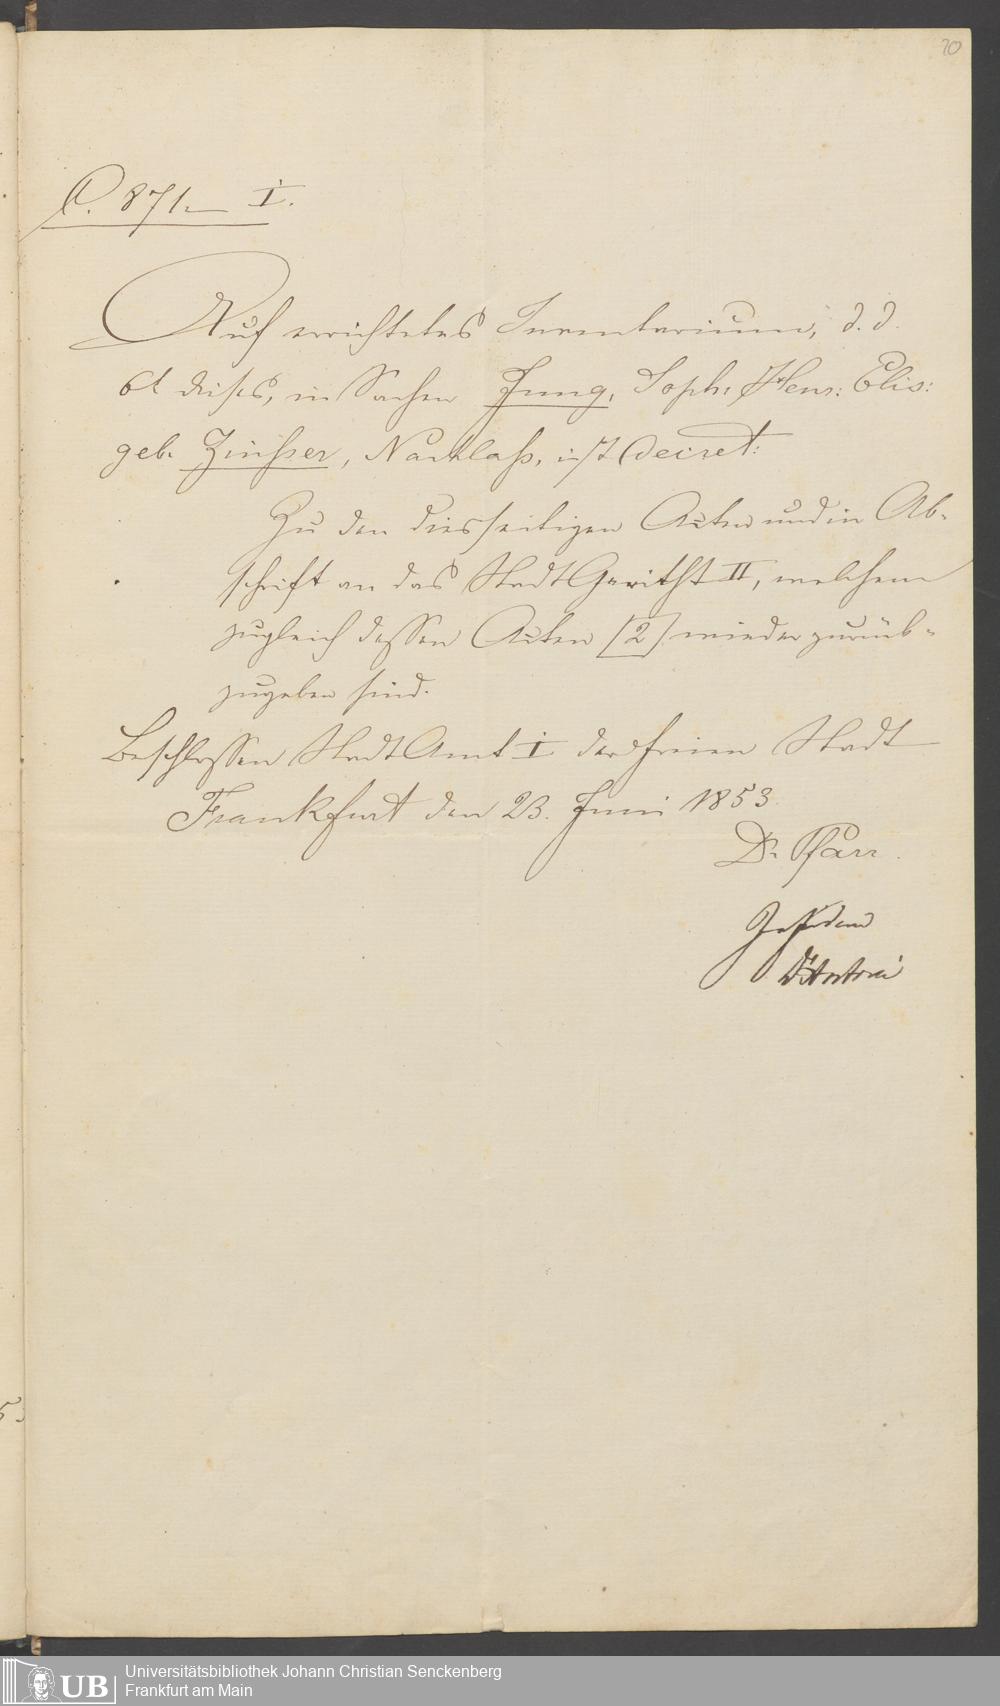 20
C. 871. I.
Auf errichtetes Inventarium, d. d.
dieses, in Sachen Jung, Soph: Henr: Elis:
geb. Zinßer, Nachlaß, ist Decret:
Zu den diesseitigen Acten und in Ab-
schrift an das StadtGericht II, welchem
zugleich dessen Acten [2] wieder zurück-
zugeben sind.
Beschlossen StadtAmt I der freien Stadt
Frankfurt den 23. Juni 1853.
Dr. Pfarr.
Universitätsbibliothek Johann Christian Senckenberg
UB Frankfurt am Main